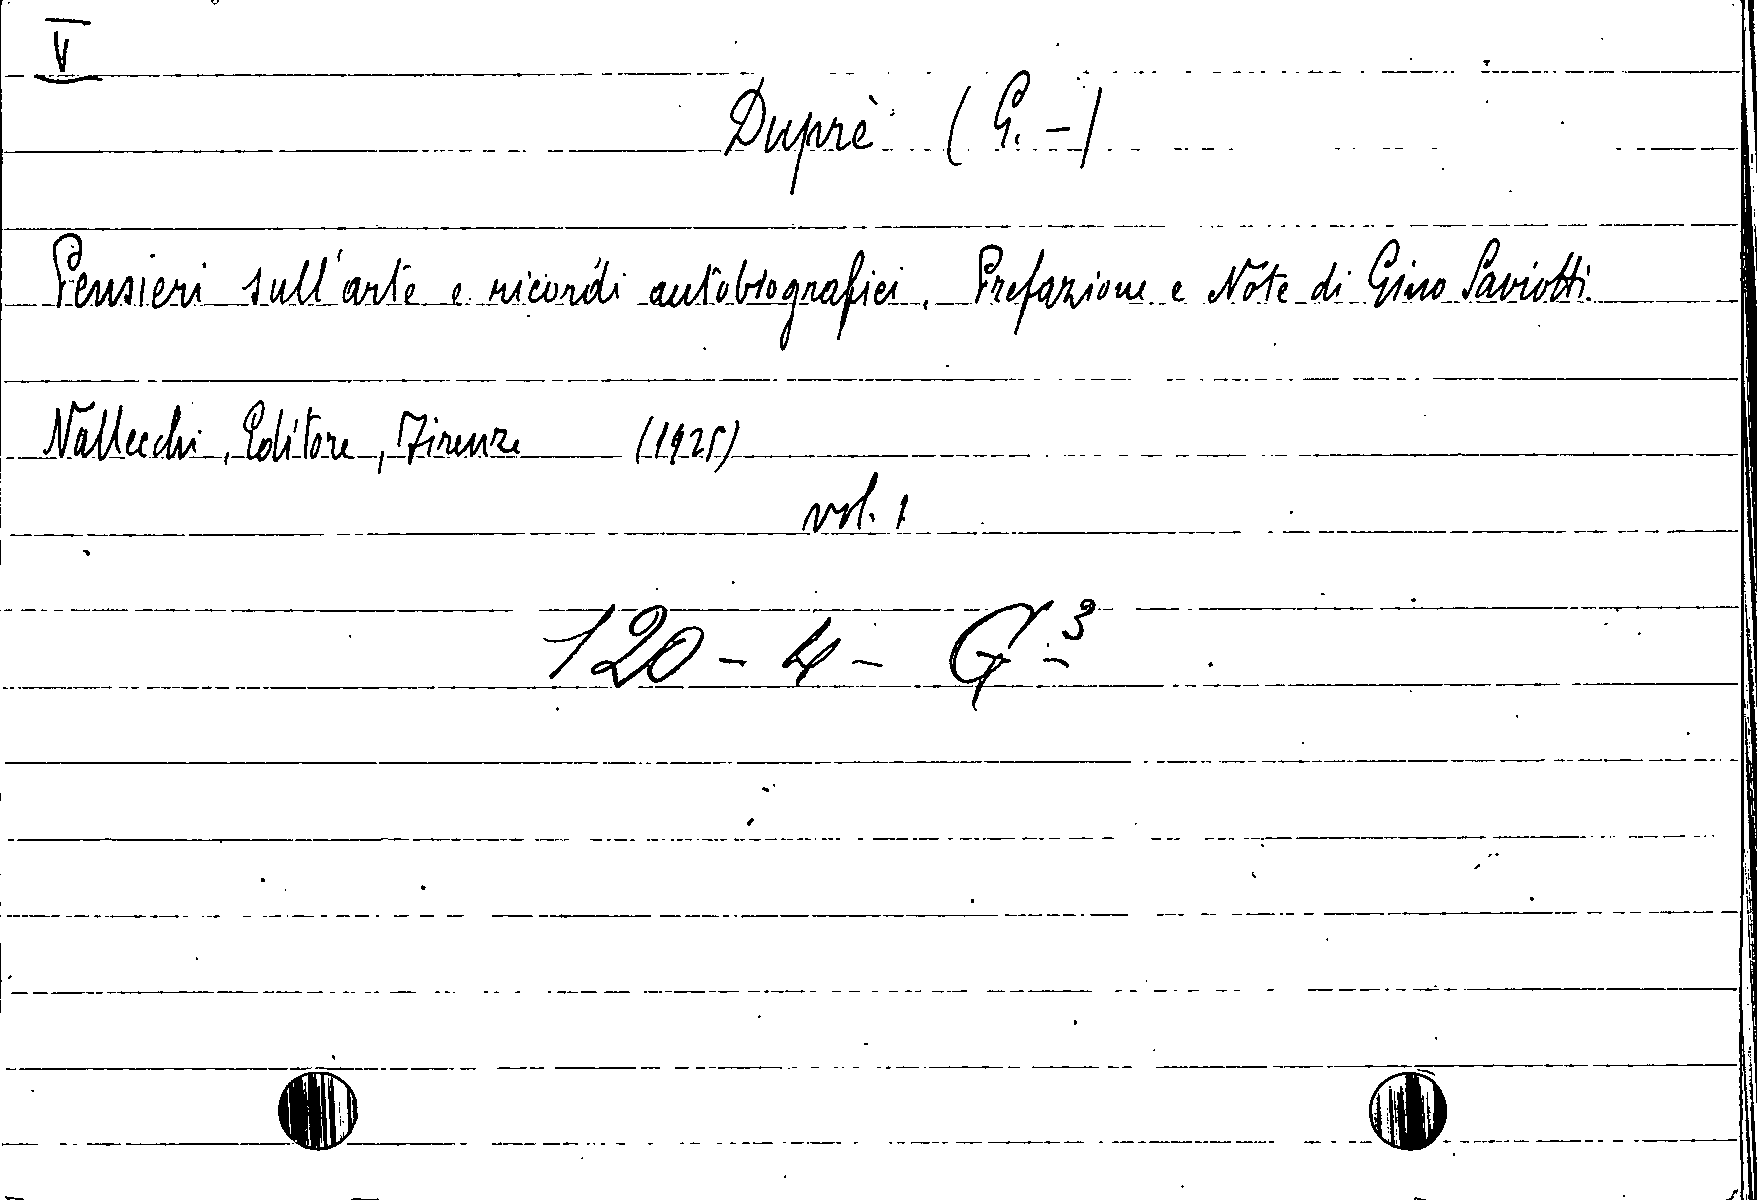 V
Duprè (G. -)
Pensieri sull'arte e ricordi autobiografici. Prefazione e Note di Gino Saviotti.
Vallecchi, Editore, Firenze (1925)
vol. 1
120 - 4 - G - 3